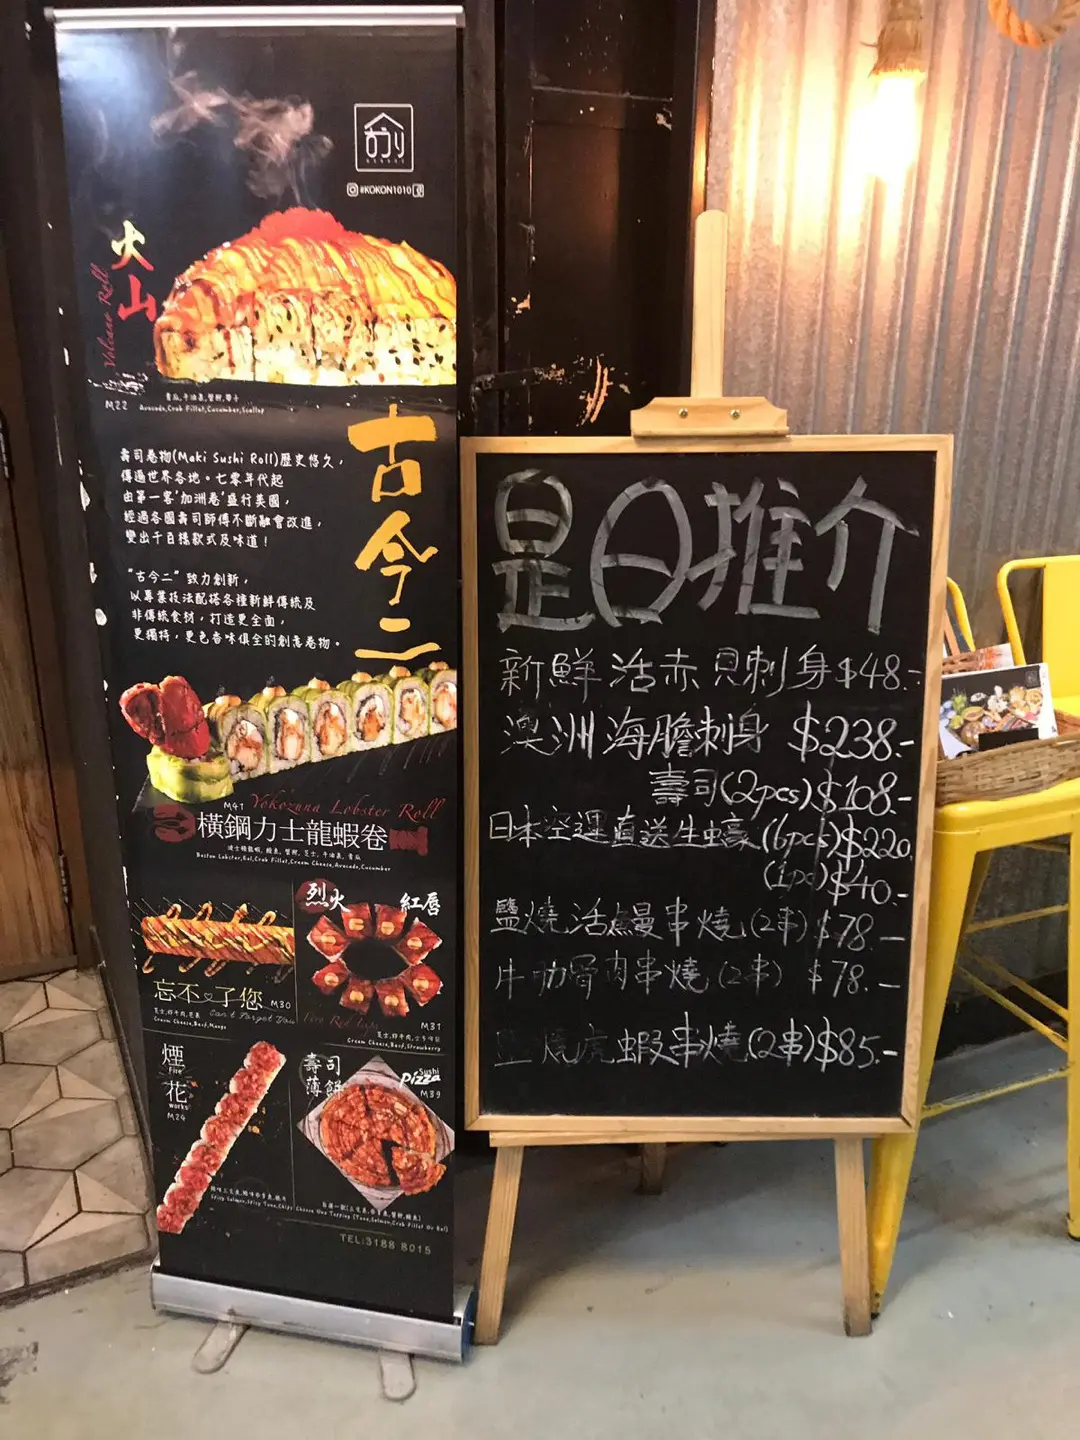 #KOKON1010
火山
Volcano Roll
M22
青瓜,牛油果,蟹柳,帶子
Avocado,Crab Fillet,Cucumber,Scallop
古今二
壽司卷物(Maki Sushi Roll)歷史悠久,
傳遍世界各地。七零年代起
由第一客'加洲卷'盛行美國,
經過各國壽司師傅不斷融會改進,
變出千百樣款式及味道!
"古今二"致力創新,
以專業技法配搭各種新鮮傳統及
非傳統食材,打造更全面,
更獨特,更色香味俱全的創意卷物。
M41
Yokozuna Lobster Roll
橫鋼力士龍蝦卷
波士頓龍蝦,鰻魚,蟹柳,芝士,牛油果,青瓜
Boston Lobster,Eel,Crab Fillet,Cream Cheese,Avocado,Cucumber
忘不了您
M30
Can't Forget You
Cream Cheese,Beef,Mango
烈火
紅唇
M31
Cream Cheese,Beef,Strawberry
煙花
Fire
works
M24
Spicy Salmon,Spicy Tuna,Chips
壽司薄餅
Sushi
Pizza
M39
Choose One Topping (Tuna,Salmon,Crab Fillet Or Eel)
TEL:3188 8015
是日推介
新鮮活赤貝刺身$48.-
澳洲海膽刺身 $238.-
壽司(2pcs)$108.-
日本空運直送生蠔(6pcs)$220.
(1pc)$40.-
鹽燒活鰻串燒(2串)$78.-
牛肋骨肉串燒(2串) $78.-
鹽燒虎蝦串燒(2串)$85.-